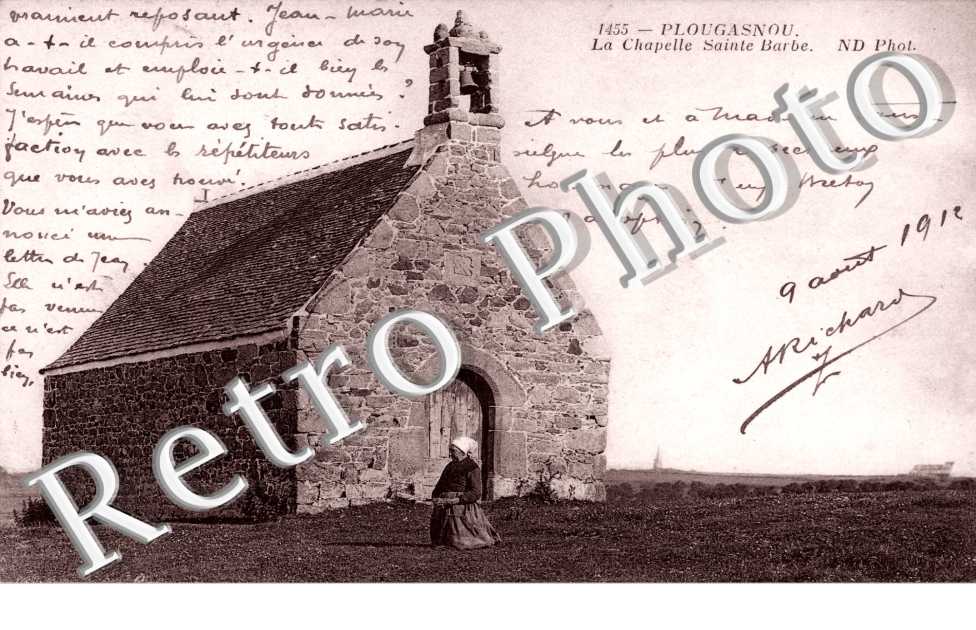 vraiment reposant. Jean-Marie
a-t-il compris l'urgence de son
travail et emploie-t-il bien les
semaines qui lui sont données ?
J'espère que vous avez toute satis-
faction avec les répétiteurs
que vous avez trouvé.
Vous m'aviez an-
noncé une
lettre de Jean
Elle n'est
pas venue
ce n'est
pas
bien
1455 — PLOUGASNOU.
La Chapelle Sainte Barbe. ND Phot.
A vous et à Madame
les plus
9 août 1912
A Richard
Retro Photo